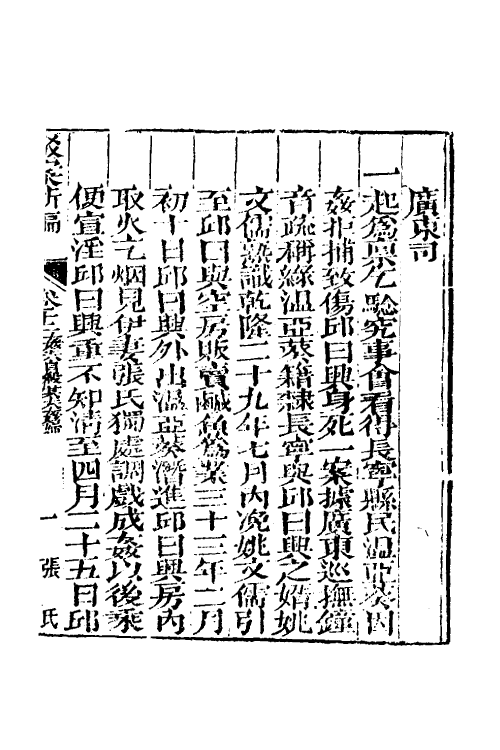 廣東司
一起爲稟乞驗究事會看得長寧縣民温亞葵因
姦拒捕致傷邱日興身死一案據廣東巡撫鐘
音疏稱緣温亞葵籍隸長寧與邱日興之婿姚
文儒熟識乾隆二十九年七月内凂姚文儒引
至邱日興空房販賣鹹魚爲業三十三年二月
初十日邱日興外出温亞葵潛進邱日興房内
取火乞烟見伊妻張氏獨處調戲成姦以後乘
便宣淫邱日興並不知情至四月二十五日邱
駁案新編 卷十 一 張氏